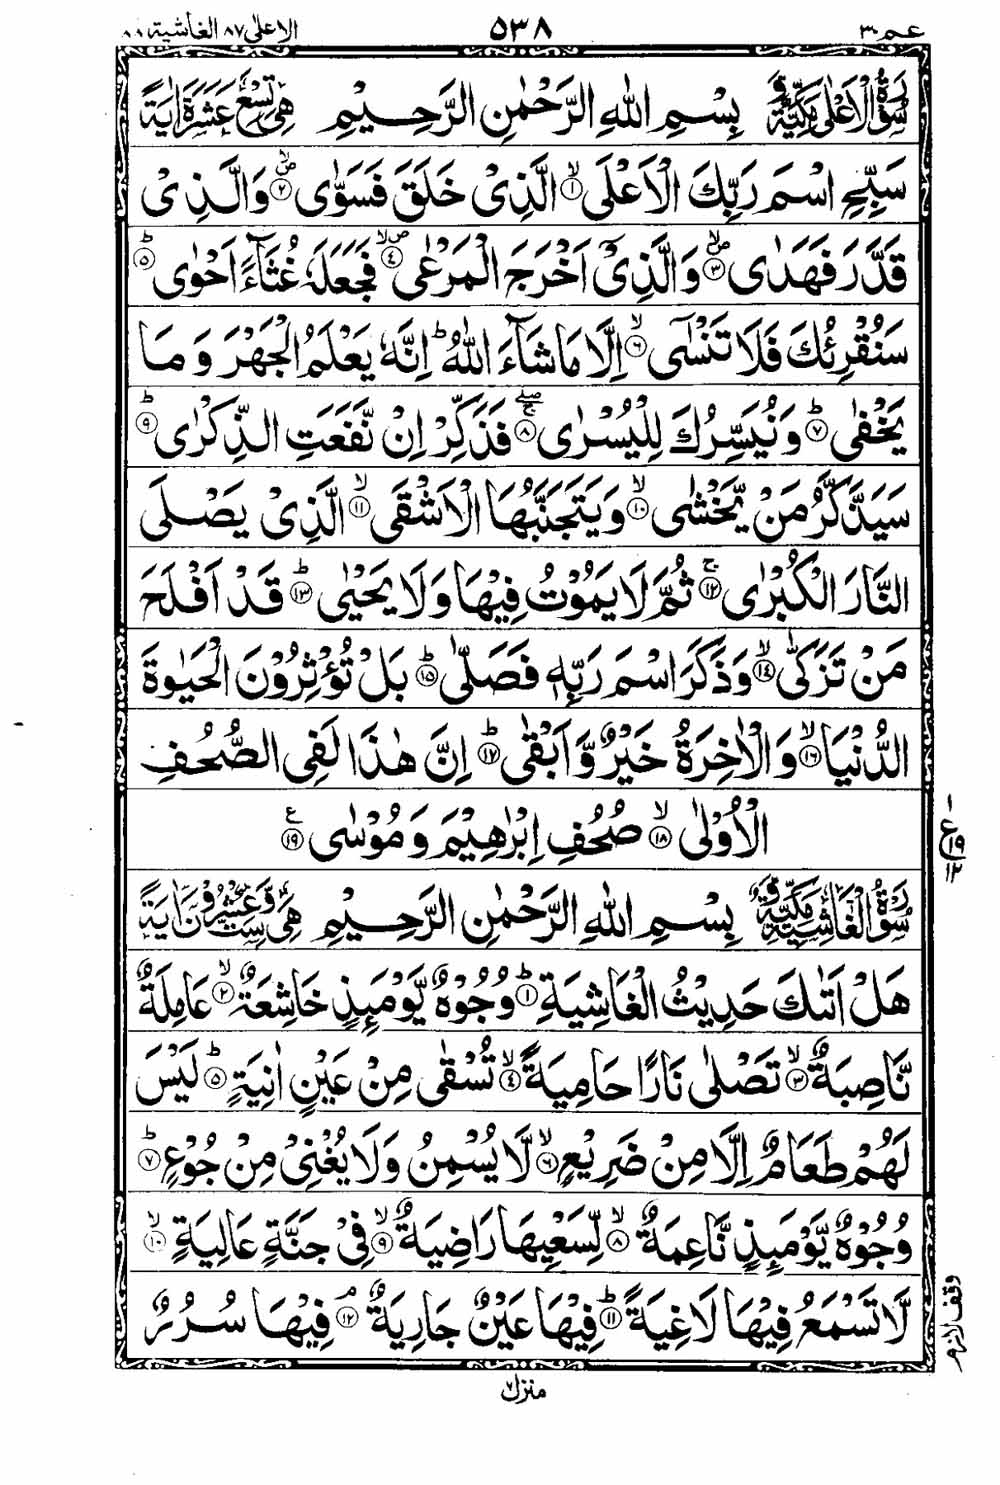 عم ٣٠ ٥٣٨ الاعلى ٨٧ الغاشية ٨٨
سُوْرَةُ الْاَعْلٰى مَكِّيَّةٌ بِسْمِ اللهِ الرَّحْمٰنِ الرَّحِيْمِ هِيَ تِسْعَ عَشَرَةَ اٰيَةً
سَبِّحِ اسْمَ رَبِّكَ الْاَعْلَى ۙ﴿١﴾ الَّذِيْ خَلَقَ فَسَوّٰى ۪ۙ﴿٢﴾ وَالَّذِيْ
قَدَّرَ فَهَدٰى ۪ۙ﴿٣﴾ وَالَّذِيْٓ اَخْرَجَ الْمَرْعٰى ۪ۙ﴿٤﴾ فَجَعَلَهٗ غُثَآءً اَحْوٰى ؕ﴿٥﴾
سَنُقْرِئُكَ فَلَا تَنْسٰٓى ۙ﴿٦﴾ اِلَّا مَا شَآءَ اللهُ ؕ اِنَّهٗ يَعْلَمُ الْجَهْرَ وَ مَا
يَخْفٰى ؕ﴿٧﴾ وَنُيَسِّرُكَ لِلْيُسْرٰى ۚۖ﴿٨﴾ فَذَكِّرْ اِنْ نَّفَعَتِ الذِّكْرٰى ؕ﴿٩﴾
سَيَذَّكَّرُ مَنْ يَّخْشٰى ۙ﴿١٠﴾ وَيَتَجَنَّبُهَا الْاَشْقَى ۙ﴿١١﴾ الَّذِيْ يَصْلَى
النَّارَ الْكُبْرٰى ۚ﴿١٢﴾ ثُمَّ لَا يَمُوْتُ فِيْهَا وَلَا يَحْيٰى ؕ﴿١٣﴾ قَدْ اَفْلَحَ
مَنْ تَزَكّٰى ۙ﴿١٤﴾ وَذَكَرَ اسْمَ رَبِّهٖ فَصَلّٰى ؕ﴿١٥﴾ بَلْ تُؤْثِرُوْنَ الْحَيٰوةَ
الدُّنْيَا ۙ﴿١٦﴾ وَالْاٰخِرَةُ خَيْرٌ وَّاَبْقٰى ؕ﴿١٧﴾ اِنَّ هٰذَا لَفِي الصُّحُفِ
الْاُوْلٰى ۙ﴿١٨﴾ صُحُفِ اِبْرٰهِيْمَ وَ مُوْسٰى ﴿١٩﴾ ع
ع ١ ١٩ ١٢
سُوْرَةُ الْغَاشِيَةِ مَكِّيَّةٌ بِسْمِ اللهِ الرَّحْمٰنِ الرَّحِيْمِ هِيَ سِتٌّ وَّعِشْرُوْنَ اٰيَةً
هَلْ اَتٰىكَ حَدِيْثُ الْغَاشِيَةِ ؕ﴿١﴾ وُجُوْهٌ يَّوْمَئِذٍ خَاشِعَةٌ ۙ﴿٢﴾ عَامِلَةٌ
نَّاصِبَةٌ ۙ﴿٣﴾ تَصْلٰى نَارًا حَامِيَةً ۙ﴿٤﴾ تُسْقٰى مِنْ عَيْنٍ اٰنِيَةٍ ؕ﴿٥﴾ لَيْسَ
لَهُمْ طَعَامٌ اِلَّا مِنْ ضَرِيْعٍ ۙ﴿٦﴾ لَّا يُسْمِنُ وَلَا يُغْنِيْ مِنْ جُوْعٍ ؕ﴿٧﴾
وُجُوْهٌ يَّوْمَئِذٍ نَّاعِمَةٌ ۙ﴿٨﴾ لِّسَعْيِهَا رَاضِيَةٌ ۙ﴿٩﴾ فِيْ جَنَّةٍ عَالِيَةٍ ۙ﴿١٠﴾
لَّا تَسْمَعُ فِيْهَا لَاغِيَةً ؕ﴿١١﴾ فِيْهَا عَيْنٌ جَارِيَةٌ ۘ﴿١٢﴾ فِيْهَا سُرُرٌ
وقف لازم
منزل ٧